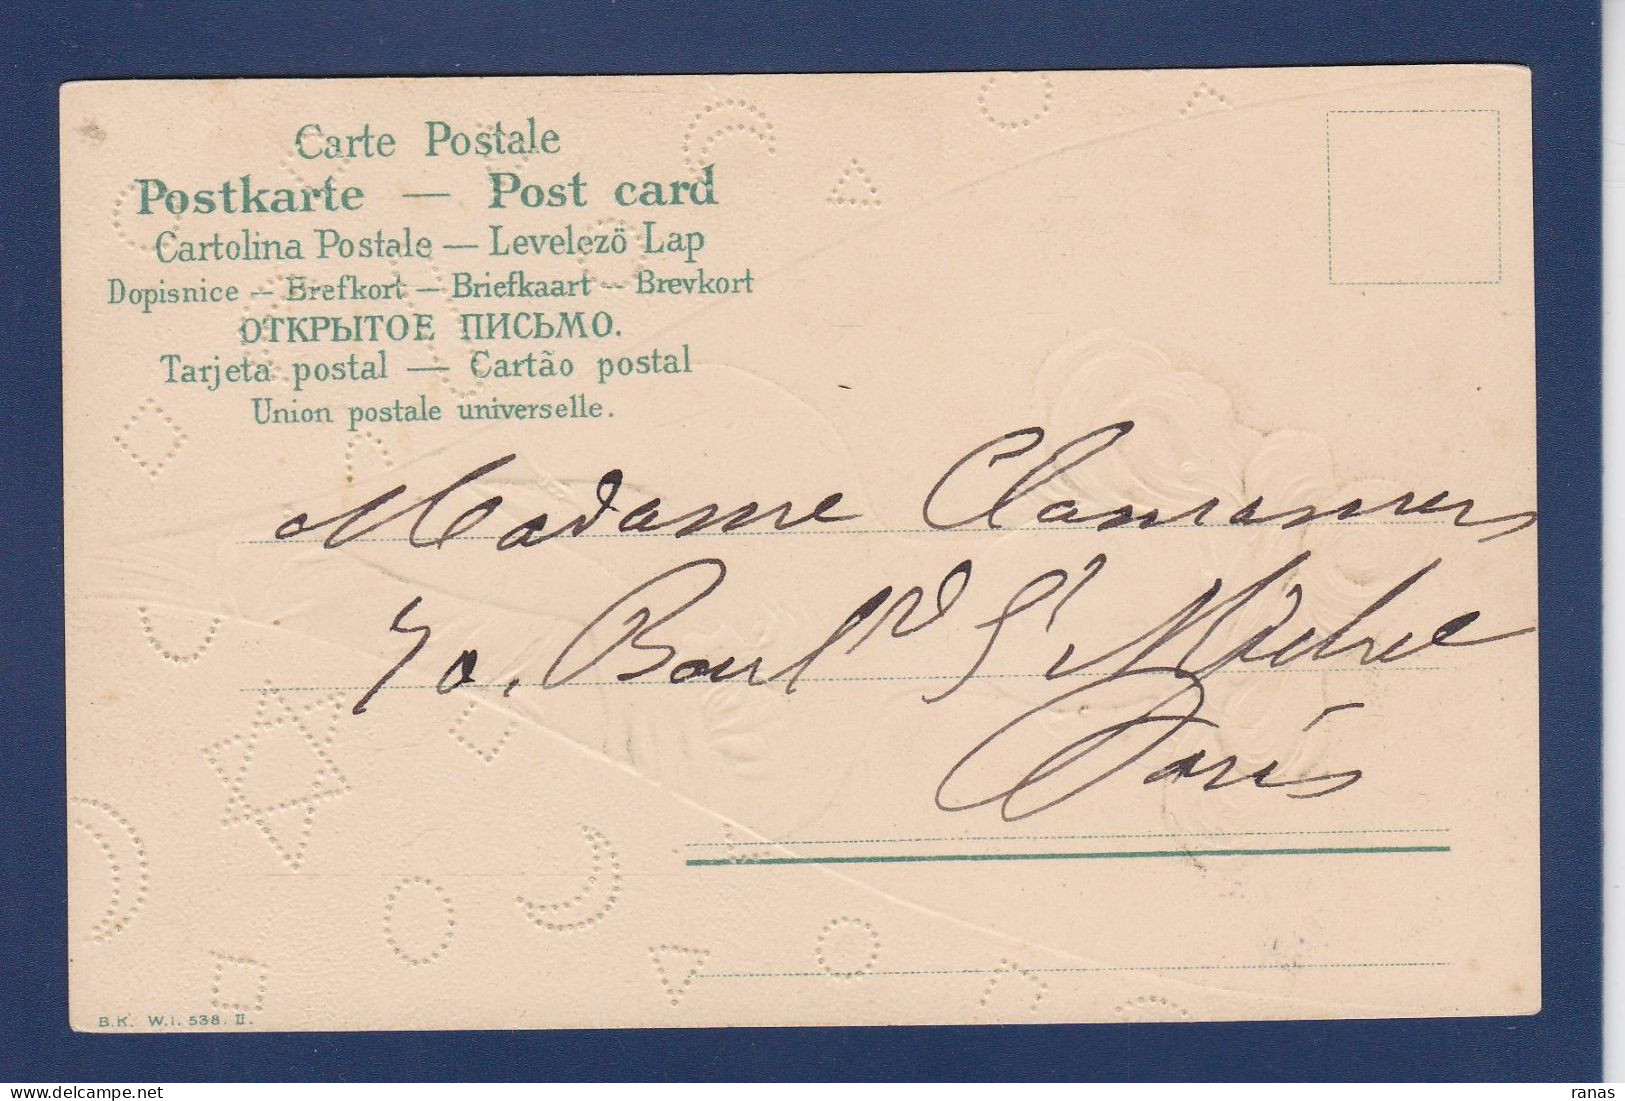 Carte Postale
Postkarte — Post card
Cartolina Postale — Levelező Lap
Dopisnice — Brefkort — Briefkaart — Brevkort
ОТКРЫТОЕ ПИСЬМО.
Tarjeta postal — Cartão postal
Union postale universelle.
Madame
70. Boulvd St Michel
Paris
B.K. W.I. 538. II.
ranas